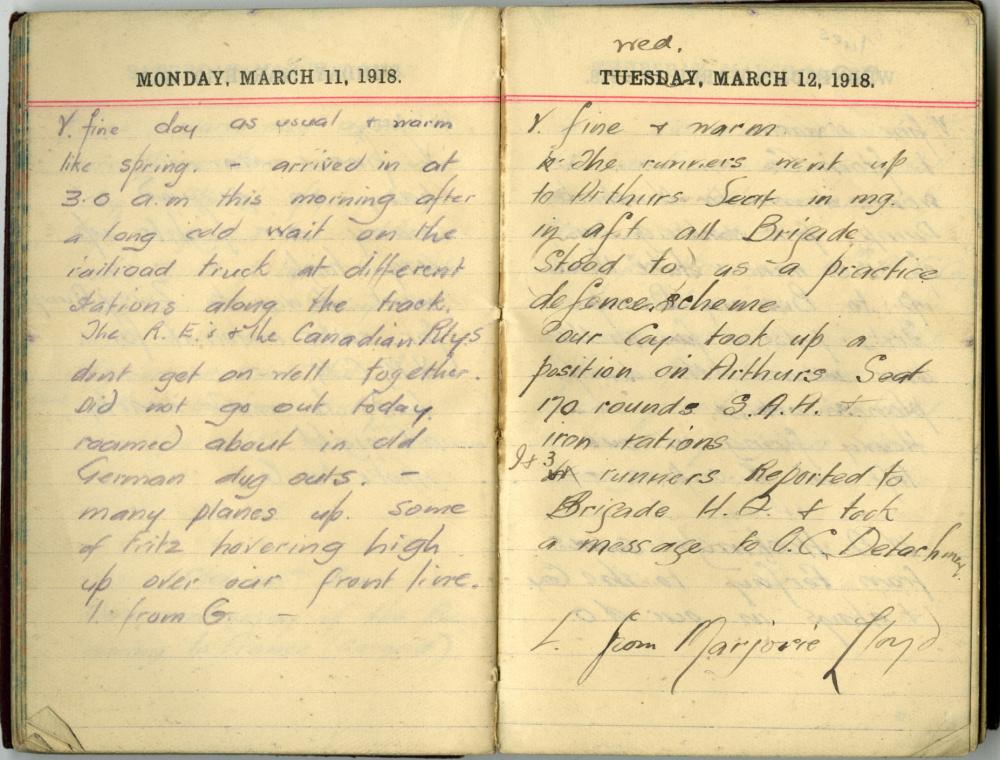 MONDAY, MARCH 11, 1918.
V. fine day as usual & warm
like spring. – arrived in at
3.0 a.m this morning after
a long cold wait on the
railroad truck at different
stations along the track.
The R. E.s & the Canadian Rlys
dont get on well together.
Did not go out today.
roamed about in old
German dug outs. –
many planes up. some
of Fritz hovering high
up over our front line.
1. from G. –
wed.
TUESDAY, MARCH 12, 1918.
V. fine & warm
The runners went up
to Arthurs Seat in mg.
in aft all Brigade
Stood to as a practice
defence scheme
our Coy took up a
position on Arthurs Seat
170 rounds S.A.A. &
iron rations
I & 3 runners Reported to
Brigade H.Q. & took
a message to O.C. Detachment.
L. from Marjorie Lloyd